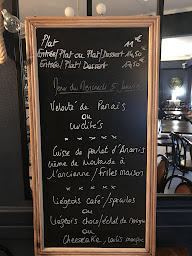 Plat 11€
Entrée/Plat ou Plat/Dessert 14,50
Entrée/Plat/Dessert 17,50
Menu du Mercredi 5
Velouté de Panais
ou
Crudités
* * * * *
Cuisse de poulet d'Ananis
Crème de Moutarde à
l'ancienne / frites maison
* * * * *
Liégeois café / spéculos
ou
Liégeois choco / éclat de
ou
Cheesecake, coulis mangue